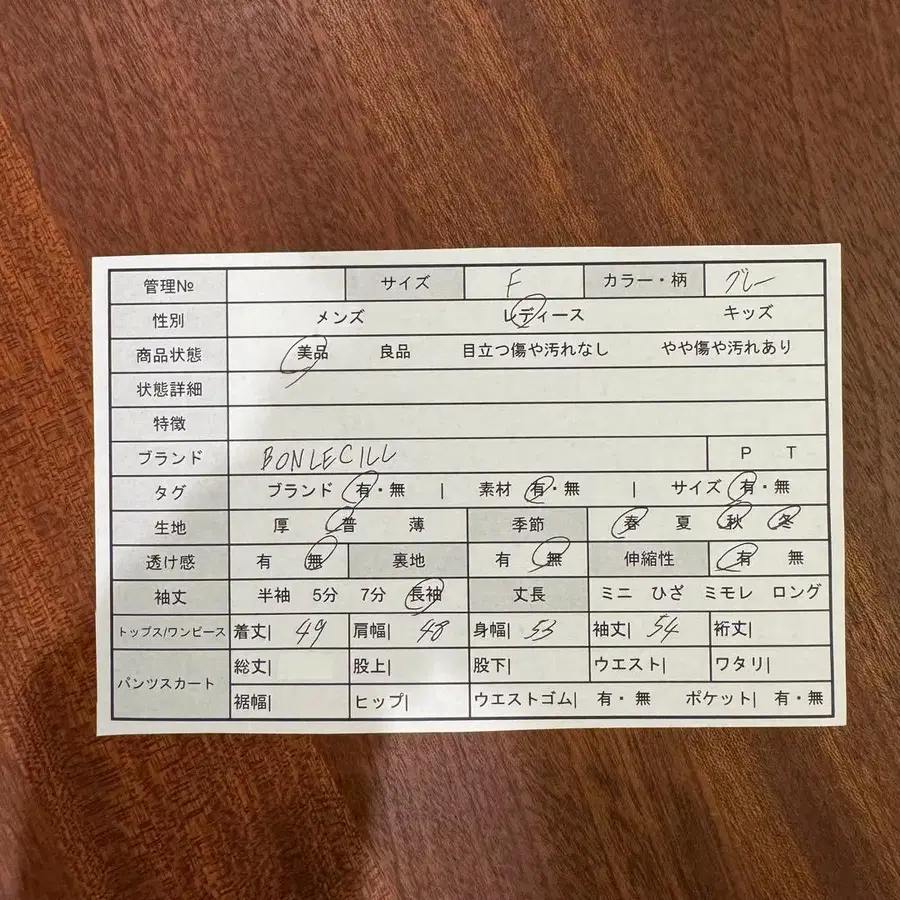 管理№ サイズ F カラー・柄 グレー
性別 メンズ レディース キッズ
商品状態 美品 良品 目立つ傷や汚れなし やや傷や汚れあり
状態詳細
特徴
ブランド BONLECILL P T
タグ ブランド 有・無 | 素材 有・無 | サイズ 有・無
生地 厚 普 薄 季節 春 夏 秋 冬
透け感 有 無 裏地 有 無 伸縮性 有 無
袖丈 半袖 5分 7分 長袖 丈長 ミニ ひざ ミモレ ロング
トップス/ワンピース 着丈| 49 肩幅| 48 身幅| 53 袖丈| 54 裄丈|
パンツスカート 総丈| 股上| 股下| ウエスト| ワタリ|
裾幅| ヒップ| ウエストゴム| 有・無 ポケット| 有・無